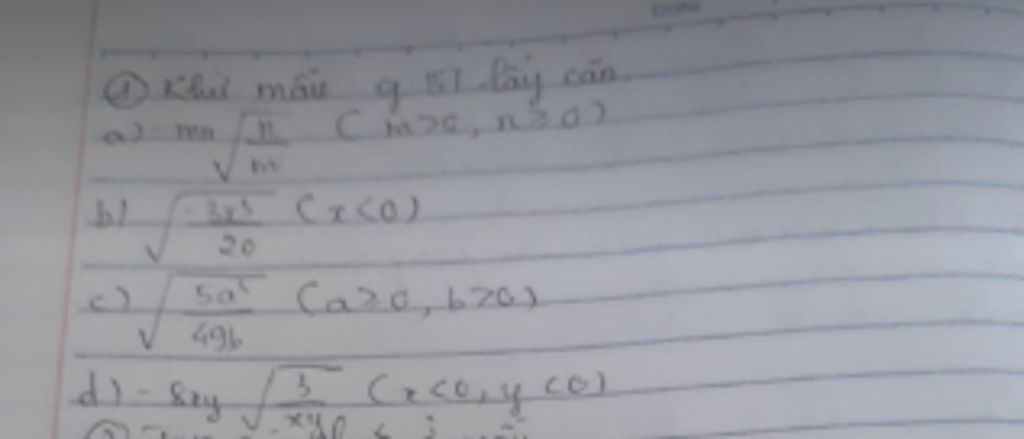 ① Khử mẫu g BT lấy căn.
a) - mn √(n/m) (m>0, n≥0)
b) √(-3x³/20) (x<0)
c) √(5a³/49b) (a≥0, b>0)
d) - 8xy √(3/xy) (x<0, y<0)
②